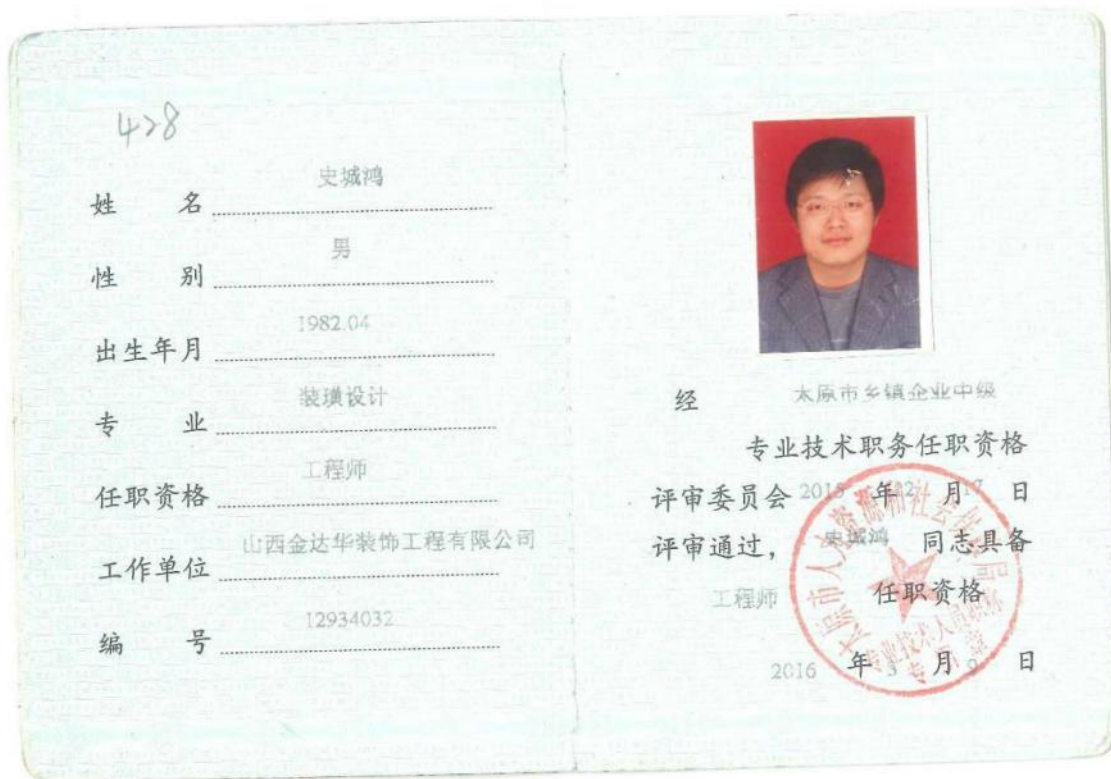 428
姓 名 史城鸿
性 别 男
出生年月 1982.04
专 业 装璜设计
任职资格 工程师
工作单位 山西金达华装饰工程有限公司
编 号 12934032
经 太原市乡镇企业中级
专业技术职务任职资格
评审委员会 2015 年 12 月 17 日
评审通过， 史城鸿 同志具备
工程师 任职资格
2016 年 3 月 9 日
太原市人力资源和社会保障局
专业技术人员职称
专用章